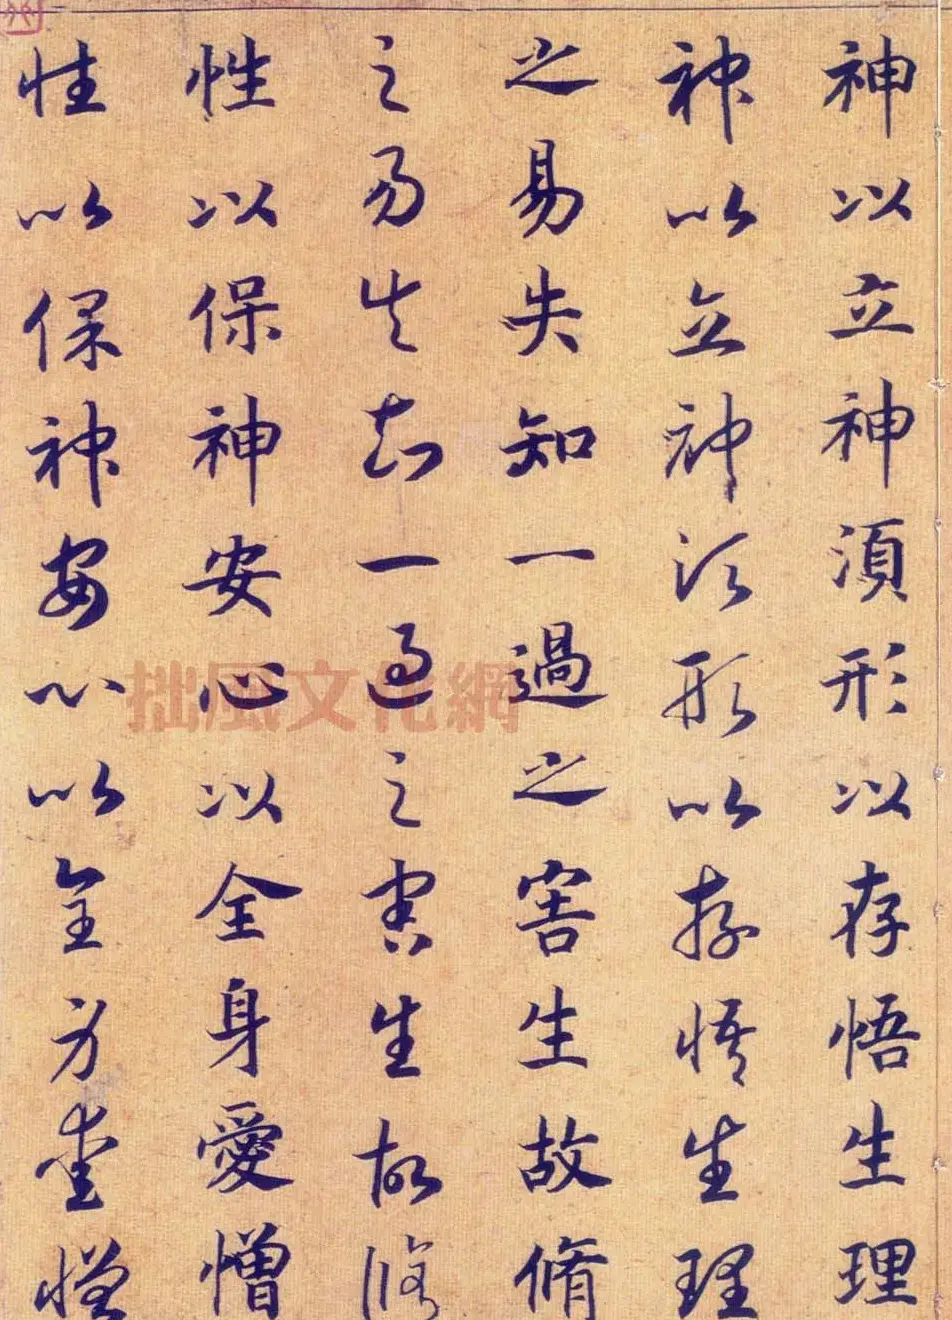 神以立神須形以存悟生理
神以立神須形以存悟生理
之易失知一過之害生故脩
之易失知一過之害生故脩
性以保神安心以全身愛憎
性以保神安心以全身愛憎
拙風文化網